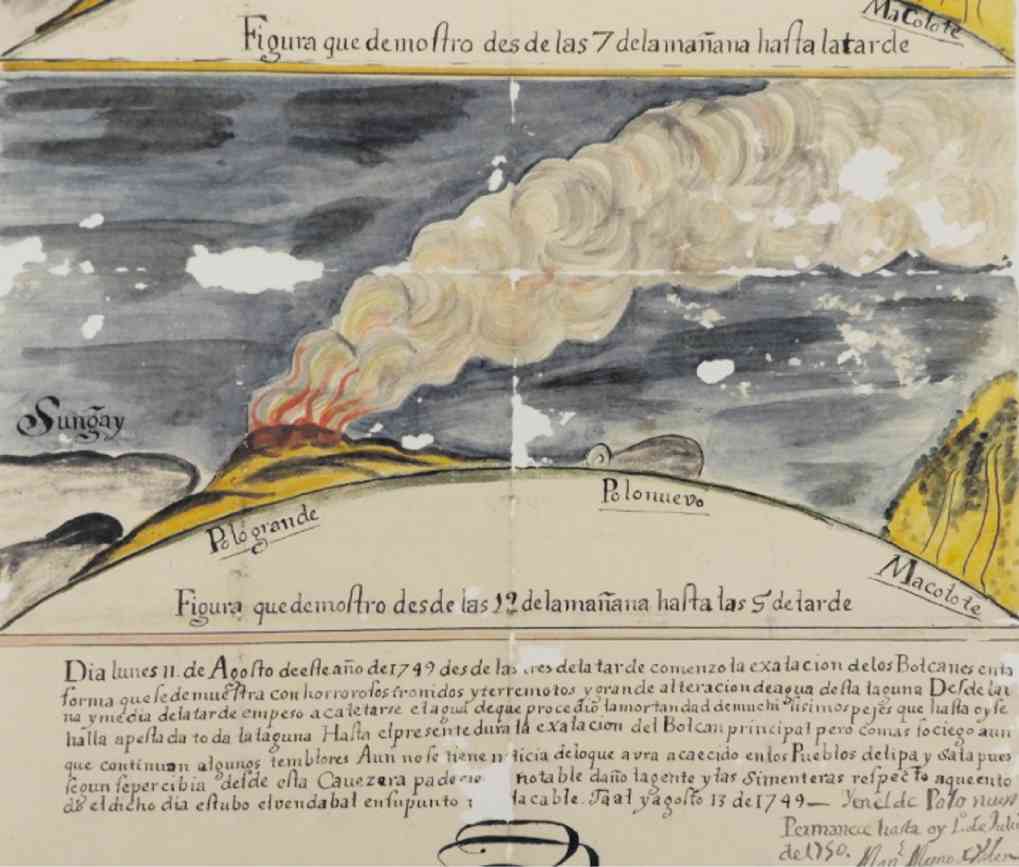 Macolote
Figura que demostro desde las 7 dela mañana hasta latarde
Sungay
Pologrande
Polonuevo
Macolote
Figura quedemostro desde las 12 delamañana hasta las 5 de tarde
Dia lunes 11. de Agosto deesteaño de1749 desde las tres dela tarde comenzo la exalacion delos Bolcanes enla
forma que sedemuestra con horrorosos tronidos y terremotos y grande alteracion deagua desta laguna Desde la
na ymedia delatarde empeso a caletarse elagua deque procedio lamortandad demuchissimospejes que hasta oy se
halla apestada toda lalaguna Hasta elpresente dura la exalacion del Bolcan principal pero comas sociego aun
que continuan algunos temblores Aun no se tiene n ticia deloque avra acaecido enlos Pueblos delipa y Sala pues
segun sepercibia desde esta Cauezera padecio notable daño lagente y las Simenteras respecto aqueento
do eldicho dia estubo elvendabal ensupunto lacable. Taal yagosto 13 de1749— Yenelde Polo nuevo
Permanece hasta oy 1.º de Julio
de1750.